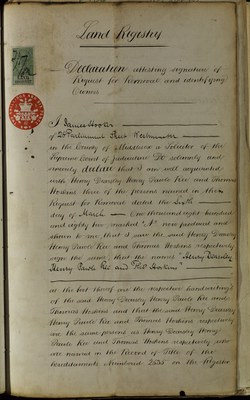 Land Registry
Declaration attesting signature of
Request for Removal and identifying
Owner
I James Hooker
of 28 Parliament Street Westminster
in the County of Middlesex a Solicitor of the
Supreme Court of Judicature Do solemnly and
sincerely declare that I am well acquainted
with Henry Dansey Henry Pavle Ree and Thomas
Hoskins three of the persons named in the
Request for Removal dated the Sixth
day of March One thousand eight hundred
and eighty four marked "A" now produced and
shown to me that I saw the said Henry Dansey
Henry Pavle Ree and Thomas Hoskins respectively
sign the same that the names "Henry Dansey
Henry Pavle Ree and Thos Hoskins"
at the foot thereof are the respective handwritings
of the said Henry Dansey Henry Pavle Ree and
Thomas Hoskins and that the said Henry Dansey
Henry Pavle Ree and Thomas Hoskins respectively
are the same persons as Henry Dansey Henry
Pavle Ree and Thomas Hoskins respectively who
are named in the Record of Title of the
Hereditaments Numbered in the Register